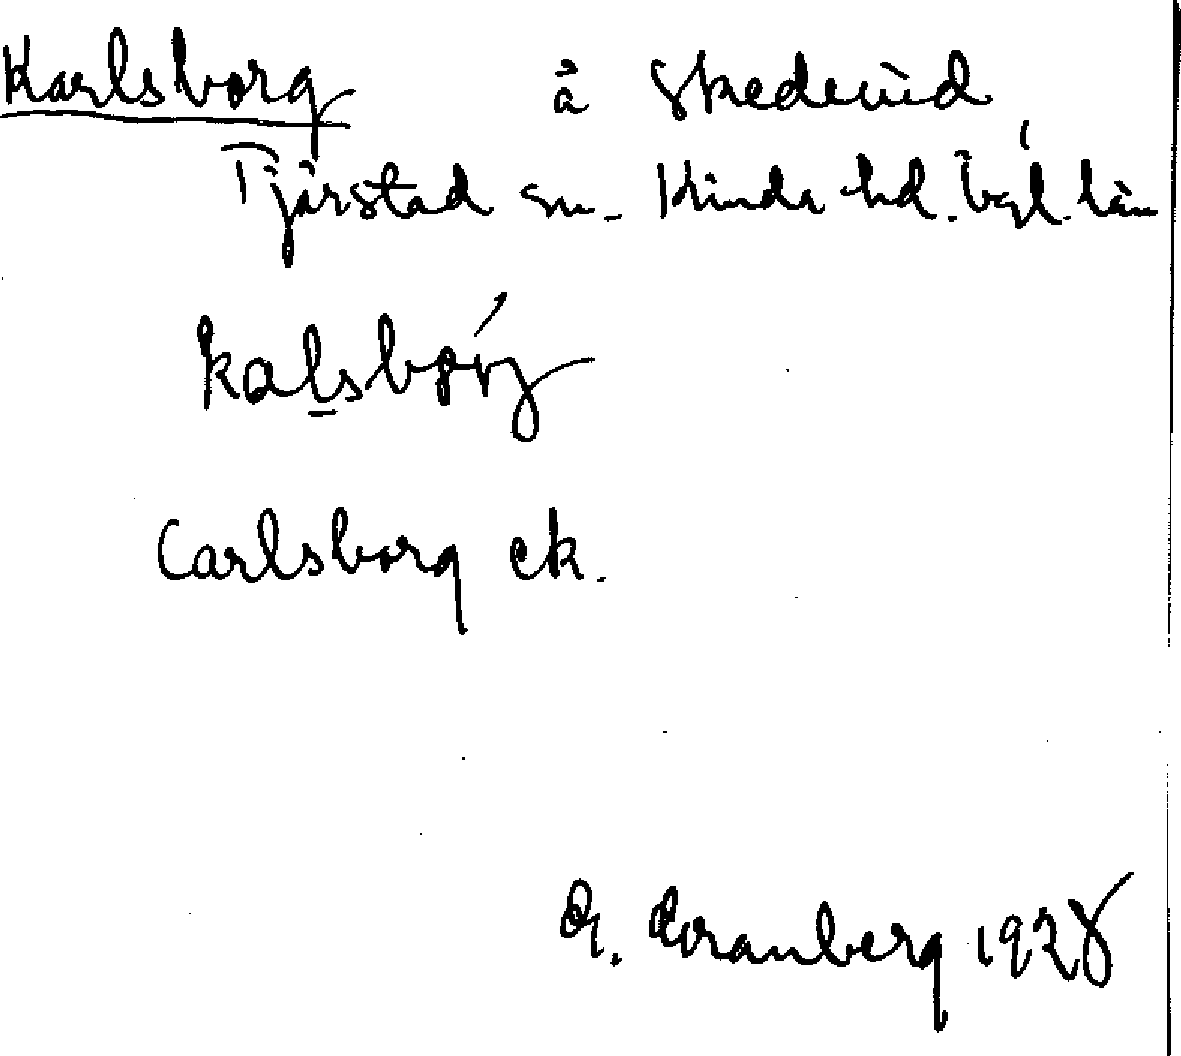 Karlsborg å Skedevid
Tjärstad sn. Kinda hd. Ögl. län
kalsborg
Carlsborg ek.
A. Cranberg 1928